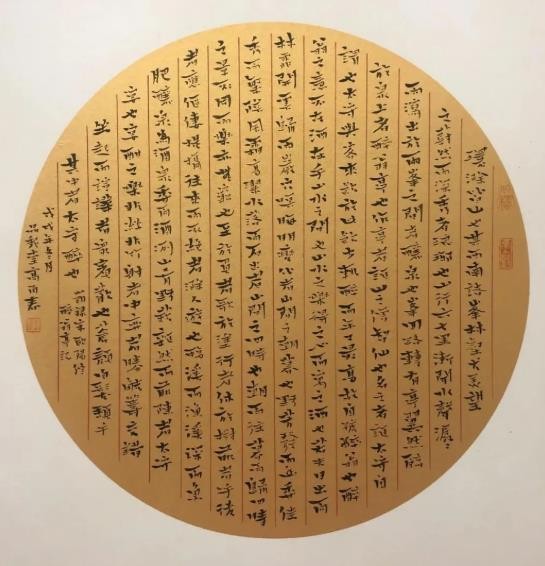 環滁皆山也其西南諸峰林壑尤美望
之蔚然而深秀者琅琊也山行六七里漸聞水聲潺潺
而瀉出於兩峰之間者釀泉也峰回路轉有亭翼然臨
於泉上者醉翁亭也作亭者誰山之僧智仙也名之者誰太守自
謂也太守與客來飲於此飲少輒醉而年又最高故自號醉翁也醉
翁之意不在酒在乎山水之間也山水之樂得之心而寓之酒也若夫日出而
林霏開雲歸而巖穴暝晦明變化者山間之朝暮也野芳發而幽香佳
秀而繁陰風霜高潔水落而石出者山間之四時也朝而往暮而歸四時
之景不同而樂亦無窮也至於負者歌於塗行者休於樹前者呼後
者應傴僂提攜往來而不絕者滁人遊也臨溪而漁溪深而魚
肥釀泉為酒泉香而酒洌山肴野蔌雜然而前陳者太守
宴也宴酣之樂非絲非竹射者中弈者勝觥籌交錯
坐起而諠譁者眾賓歡也蒼顏白髮頹乎
其中者太守醉也
節錄宋歐陽修
醉翁亭記
戊戌年